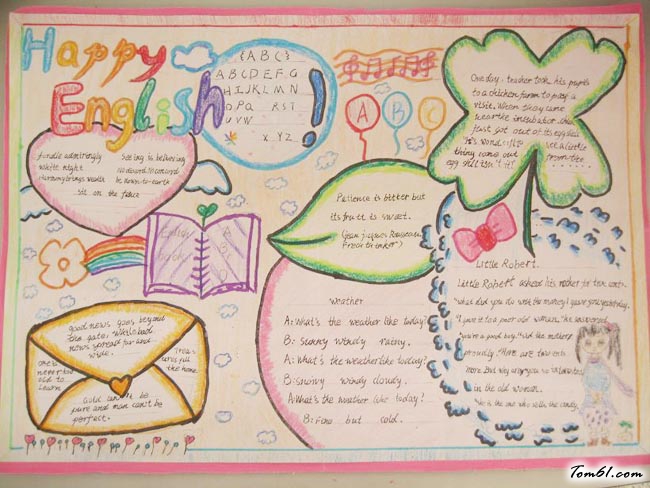 Happy
English!
{ABC}
ABCDEFG
HIJKLMN
OPQ RST
UVW
X YZ
A B C
One day. teacher took his pupils
to a chicken farm to pay a
visit. When they came
near the incubator. the
just got out of its eggshell
It's wonderful
see a little
thing come out
from the
egg shell isn't it!
handle admiringly
White night
Harmony brings wealth
Seeing is believing
No discord. No concord
be down-to-earth
sit on the fence
English
A
B
Patience is bitter but
its fruit is sweet.
(Jean Jacques Rousseau
French thinker)
weather
A: What's the weather like today?
B: sunny windy rainy.
A: What's the weather like today?
B: snowy windy cloudy.
A: What's the weather like today?
B: Fine but cold.
Little Robert.
Little Robert asked his mother for two cents.
"What did you do with the money I gave you yesterday."
"I gave it to a poor old woman." he answered
"you're a good boy." said the mother
proudly. "Here are two cents
more. But why are you so interested
in the old woman.
"She is the one who sells the candy.
good news goes beyond
the gate, while bad
news spread far and
wide.
One is
never too
old to
Learn
the home.
Gold can't be
pure and man can't be
perfect.
Tom61.com